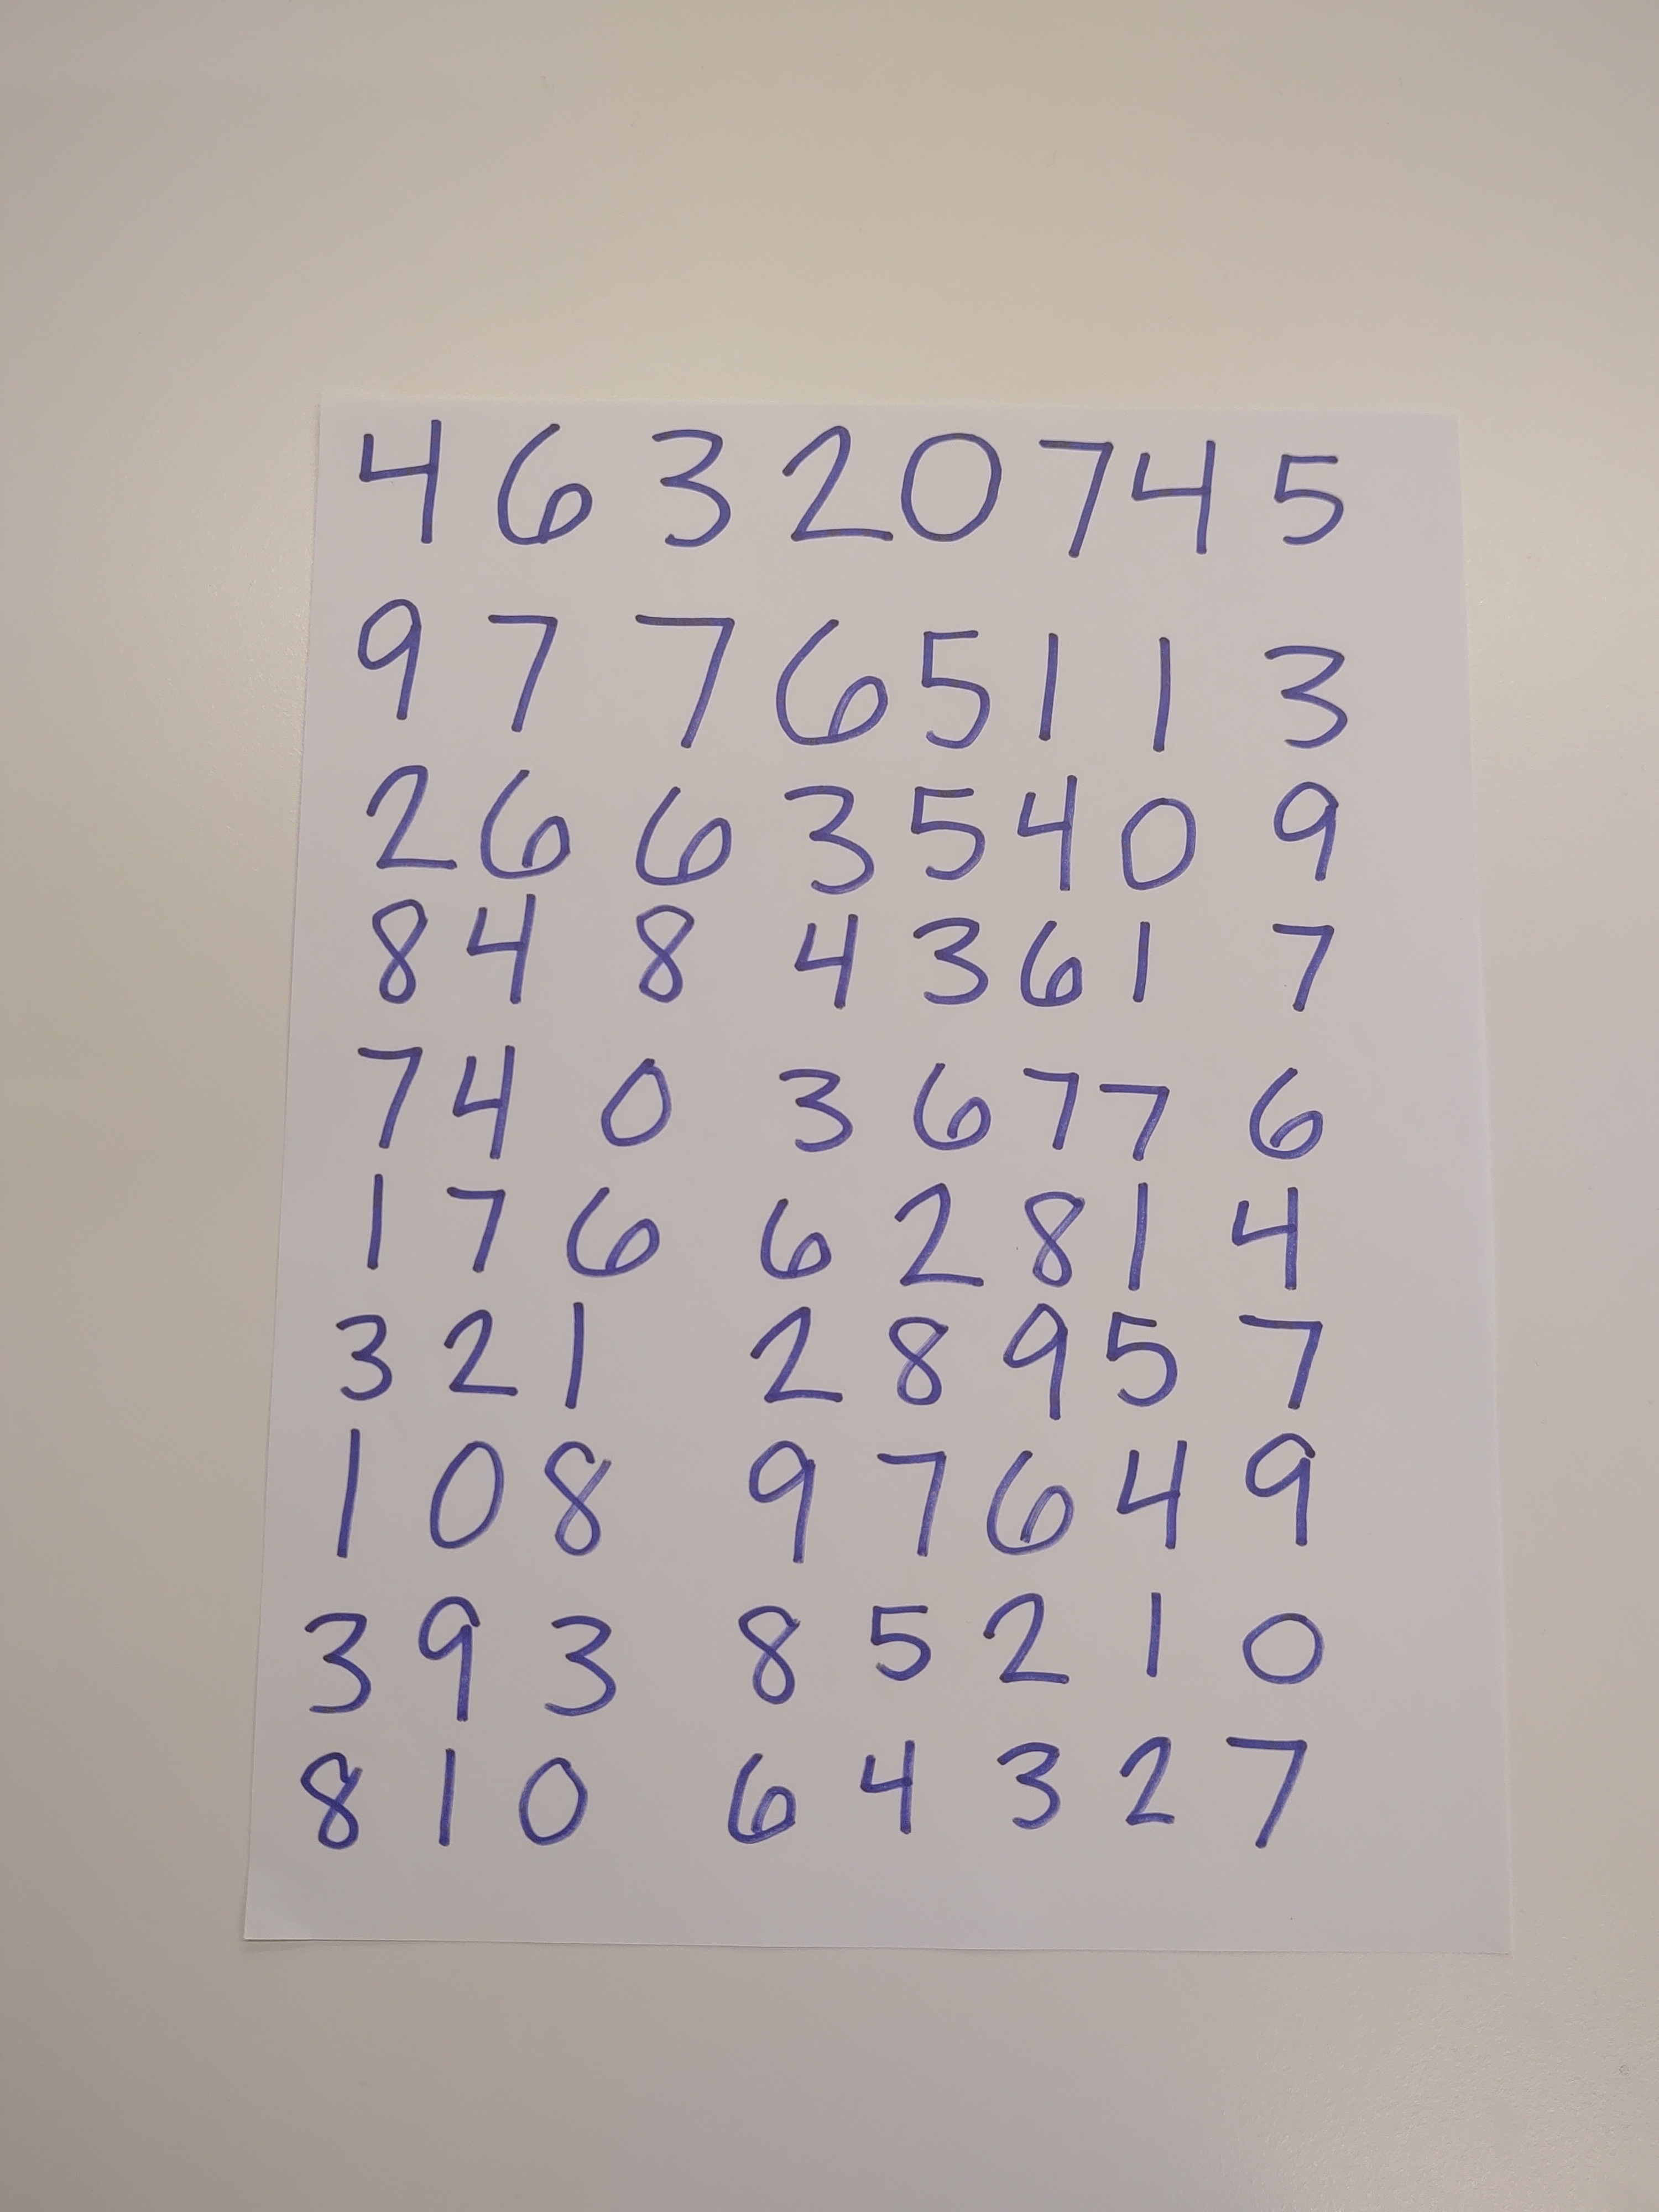 4 6 3 2 0 7 4 5
9 7 7 6 5 1 1 3
2 6 6 3 5 4 0 9
8 4 8 4 3 6 1 7
7 4 0 3 6 7 7 6
1 7 6 6 2 8 1 4
3 2 1 2 8 9 5 7
1 0 8 9 7 6 4 9
3 9 3 8 5 2 1 0
8 1 0 6 4 3 2 7